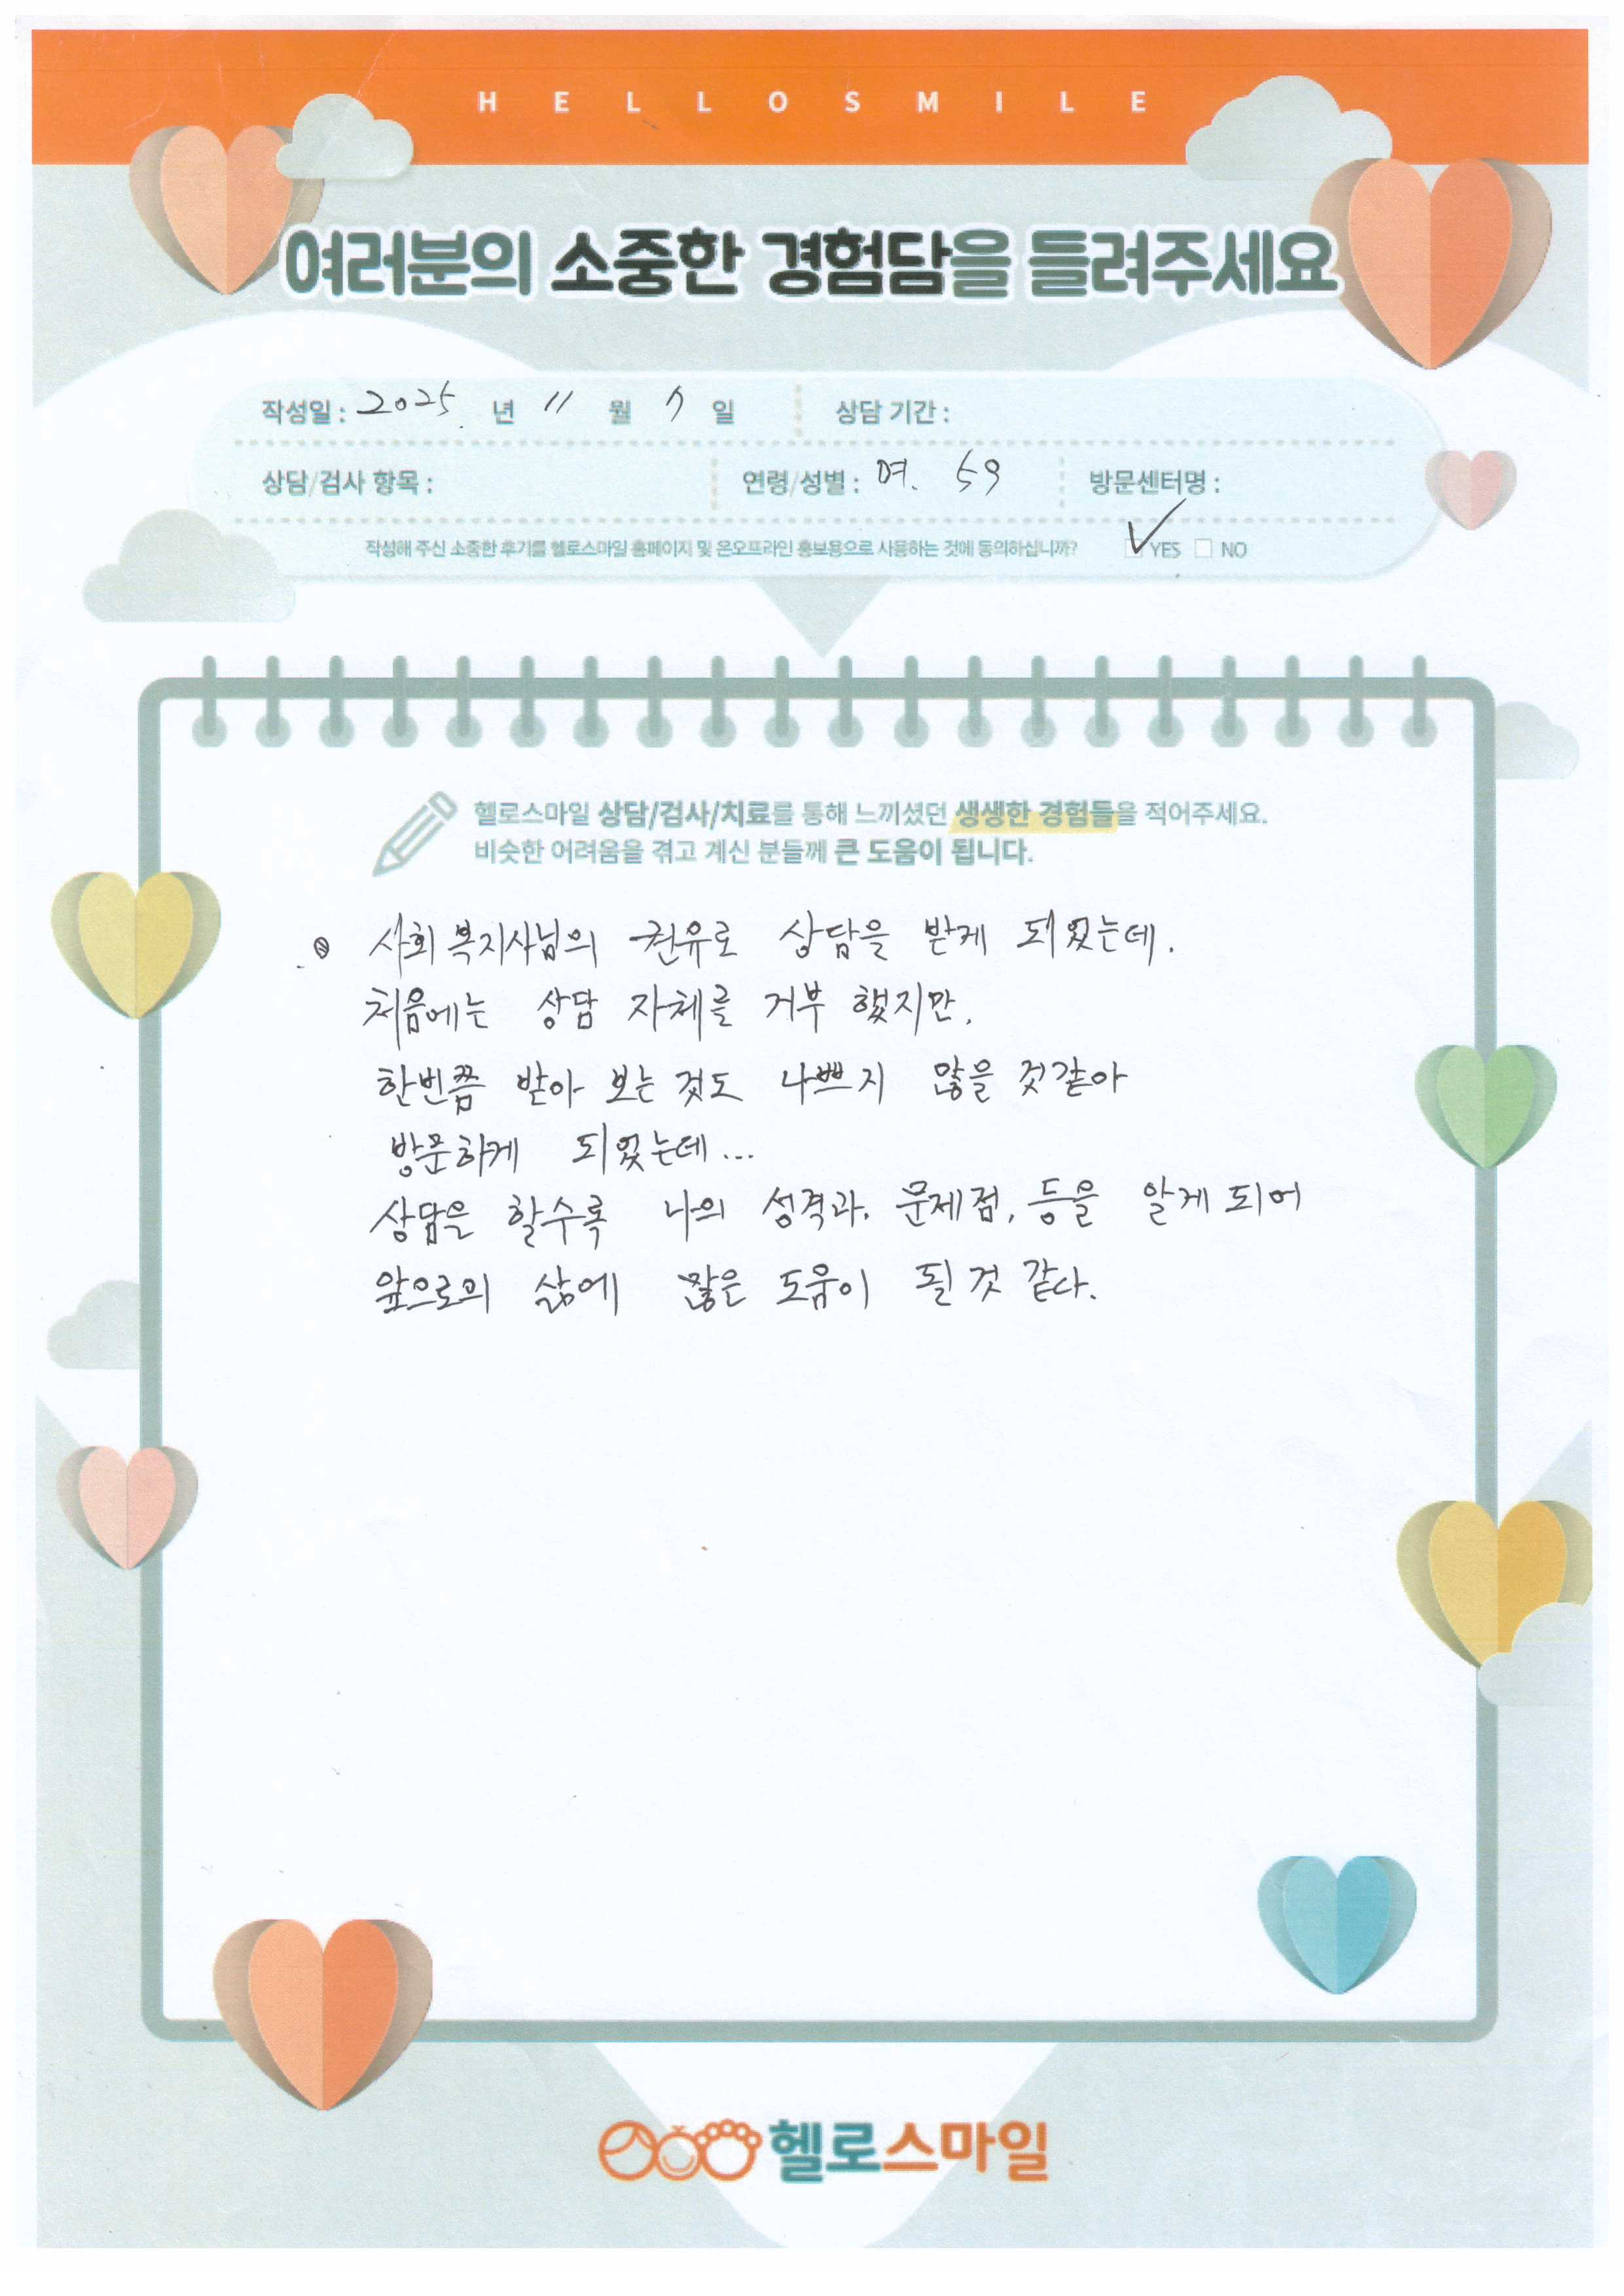 HELLOSMILE
여러분의 소중한 경험담을 들려주세요
작성일 : 2025 년 11 월 7 일 상담 기간 :
상담/검사 항목 : 연령/성별 : 여. 59 방문센터명 :
작성해 주신 소중한 후기를 헬로스마일 홈페이지 및 온오프라인 홍보용으로 사용하는 것에 동의하십니까? YES NO
헬로스마일 상담/검사/치료를 통해 느끼셨던 생생한 경험들을 적어주세요.
비슷한 어려움을 겪고 계신 분들께 큰 도움이 됩니다.
사회복지사님의 권유로 상담을 받게 되었는데.
처음에는 상담 자체를 거부 했지만,
한번쯤 받아 보는 것도 나쁘지 않을 것같아
방문하게 되었는데...
상담을 할수록 나의 성격과. 문제점, 등을 알게 되어
앞으로의 삶에 많은 도움이 될 것 같다.
헬로스마일